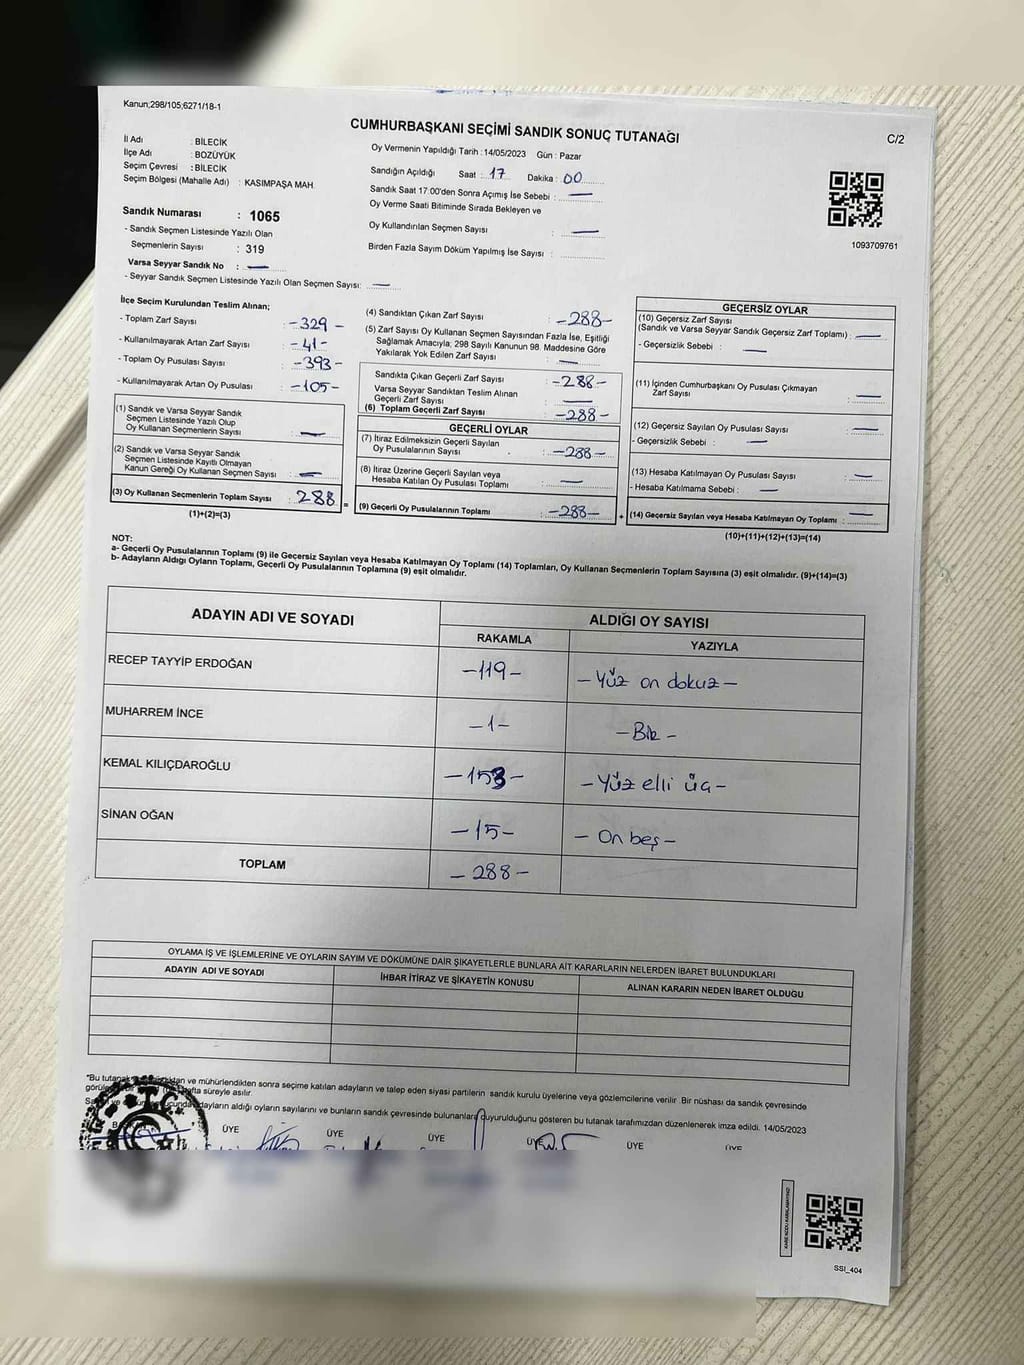 Kanun;298/105;6271/18-1
CUMHURBAŞKANI SEÇİMİ SANDIK SONUÇ TUTANAĞI
C/2
İl Adı : BİLECİK
İlçe Adı : BOZÜYÜK
Seçim Çevresi : BİLECİK
Seçim Bölgesi (Mahalle Adı) : KASIMPAŞA MAH.
Oy Vermenin Yapıldığı Tarih : 14/05/2023 Gün : Pazar
Sandığın Açıldığı Saat : 17 Dakika : 00
Sandık Saat 17:00'den Sonra Açımış İse Sebebi : —
Oy Verme Saati Bitiminde Sırada Bekleyen ve
Oy Kullandırılan Seçmen Sayısı : —
Birden Fazla Sayım Döküm Yapılmış İse Sayısı :
1093709761
Sandık Numarası : 1065
- Sandık Seçmen Listesinde Yazılı Olan
Seçmenlerin Sayısı : 319
Varsa Seyyar Sandık No : —
- Seyyar Sandık Seçmen Listesinde Yazılı Olan Seçmen Sayısı: —
İlçe Seçim Kurulundan Teslim Alınan;
- Toplam Zarf Sayısı : -329-
- Kullanılmayarak Artan Zarf Sayısı : -41-
- Toplam Oy Pusulası Sayısı : -393-
- Kullanılmayarak Artan Oy Pusulası : -105-
(1) Sandık ve Varsa Seyyar Sandık
Seçmen Listesinde Yazılı Olup
Oy Kullanan Seçmenlerin Sayısı : —
(2) Sandık ve Varsa Seyyar Sandık
Seçmen Listesinde Kayıtlı Olmayan
Kanun Gereği Oy Kullanan Seçmen Sayısı : —
(3) Oy Kullanan Seçmenlerin Toplam Sayısı : 288 =
(1)+(2)=(3)
(4) Sandıktan Çıkan Zarf Sayısı : -288-
(5) Zarf Sayısı Oy Kullanan Seçmen Sayısından Fazla İse, Eşitliği
Sağlamak Amacıyla; 298 Sayılı Kanunun 98. Maddesine Göre
Yakılarak Yok Edilen Zarf Sayısı : —
Sandıkta Çıkan Geçerli Zarf Sayısı : -288-
Varsa Seyyar Sandıktan Teslim Alınan
Geçerli Zarf Sayısı : —
(6) Toplam Geçerli Zarf Sayısı : -288-
GEÇERLİ OYLAR
(7) İtiraz Edilmeksizin Geçerli Sayılan
Oy Pusulalarının Sayısı : -288-
(8) İtiraz Üzerine Geçerli Sayılan veya
Hesaba Katılan Oy Pusulası Toplamı : —
(9) Geçerli Oy Pusulalarının Toplamı : -288- +
GEÇERSİZ OYLAR
(10) Geçersiz Zarf Sayısı
(Sandık ve Varsa Seyyar Sandık Geçersiz Zarf Toplamı) : —
- Geçersizlik Sebebi : —
(11) İçinden Cumhurbaşkanı Oy Pusulası Çıkmayan
Zarf Sayısı : —
(12) Geçersiz Sayılan Oy Pusulası Sayısı : —
- Geçersizlik Sebebi : —
(13) Hesaba Katılmayan Oy Pusulası Sayısı : —
- Hesaba Katılmama Sebebi : —
(14) Geçersiz Sayılan veya Hesaba Katılmayan Oy Toplamı : —
(10)+(11)+(12)+(13)=(14)
NOT:
a- Geçerli Oy Pusulalarının Toplamı (9) ile Geçersiz Sayılan veya Hesaba Katılmayan Oy Toplamı (14) Toplamları, Oy Kullanan Seçmenlerin Toplam Sayısına (3) eşit olmalıdır. (9)+(14)=(3)
b- Adayların Aldığı Oyların Toplamı, Geçerli Oy Pusulalarının Toplamına (9) eşit olmalıdır.
ADAYIN ADI VE SOYADI ALDIĞI OY SAYISI
RAKAMLA YAZIYLA
RECEP TAYYİP ERDOĞAN -119- -Yüz on dokuz-
MUHARREM İNCE -1- -Bir-
KEMAL KILIÇDAROĞLU -153- -Yüz elli üç-
SİNAN OĞAN -15- -On beş-
TOPLAM -288-
OYLAMA İŞ VE İŞLEMLERİNE VE OYLARIN SAYIM VE DÖKÜMÜNE DAİR ŞİKAYETLERLE BUNLARA AİT KARARLARIN NELERDEN İBARET BULUNDUKLARI
ADAYIN ADI VE SOYADI İHBAR İTİRAZ VE ŞİKAYETİN KONUSU ALINAN KARARIN NEDEN İBARET OLDUGU
"Bu tutanak ve mühürlendikten sonra seçime katılan adayların ve talep eden siyasi partilerin sandık kurulu üyelerine veya gözlemcilerine verilir. Bir nüshası da sandık çevresinde
hafta süreyle asılır.
adayların aldığı oyların sayılarını ve bunların sandık çevresinde bulunanlara duyurulduğunu gösteren bu tutanak tarafımızdan düzenlenerek imza edildi. 14/05/2023
ÜYE ÜYE ÜYE ÜYE ÜYE ÜYE
T.C.
SSI_404